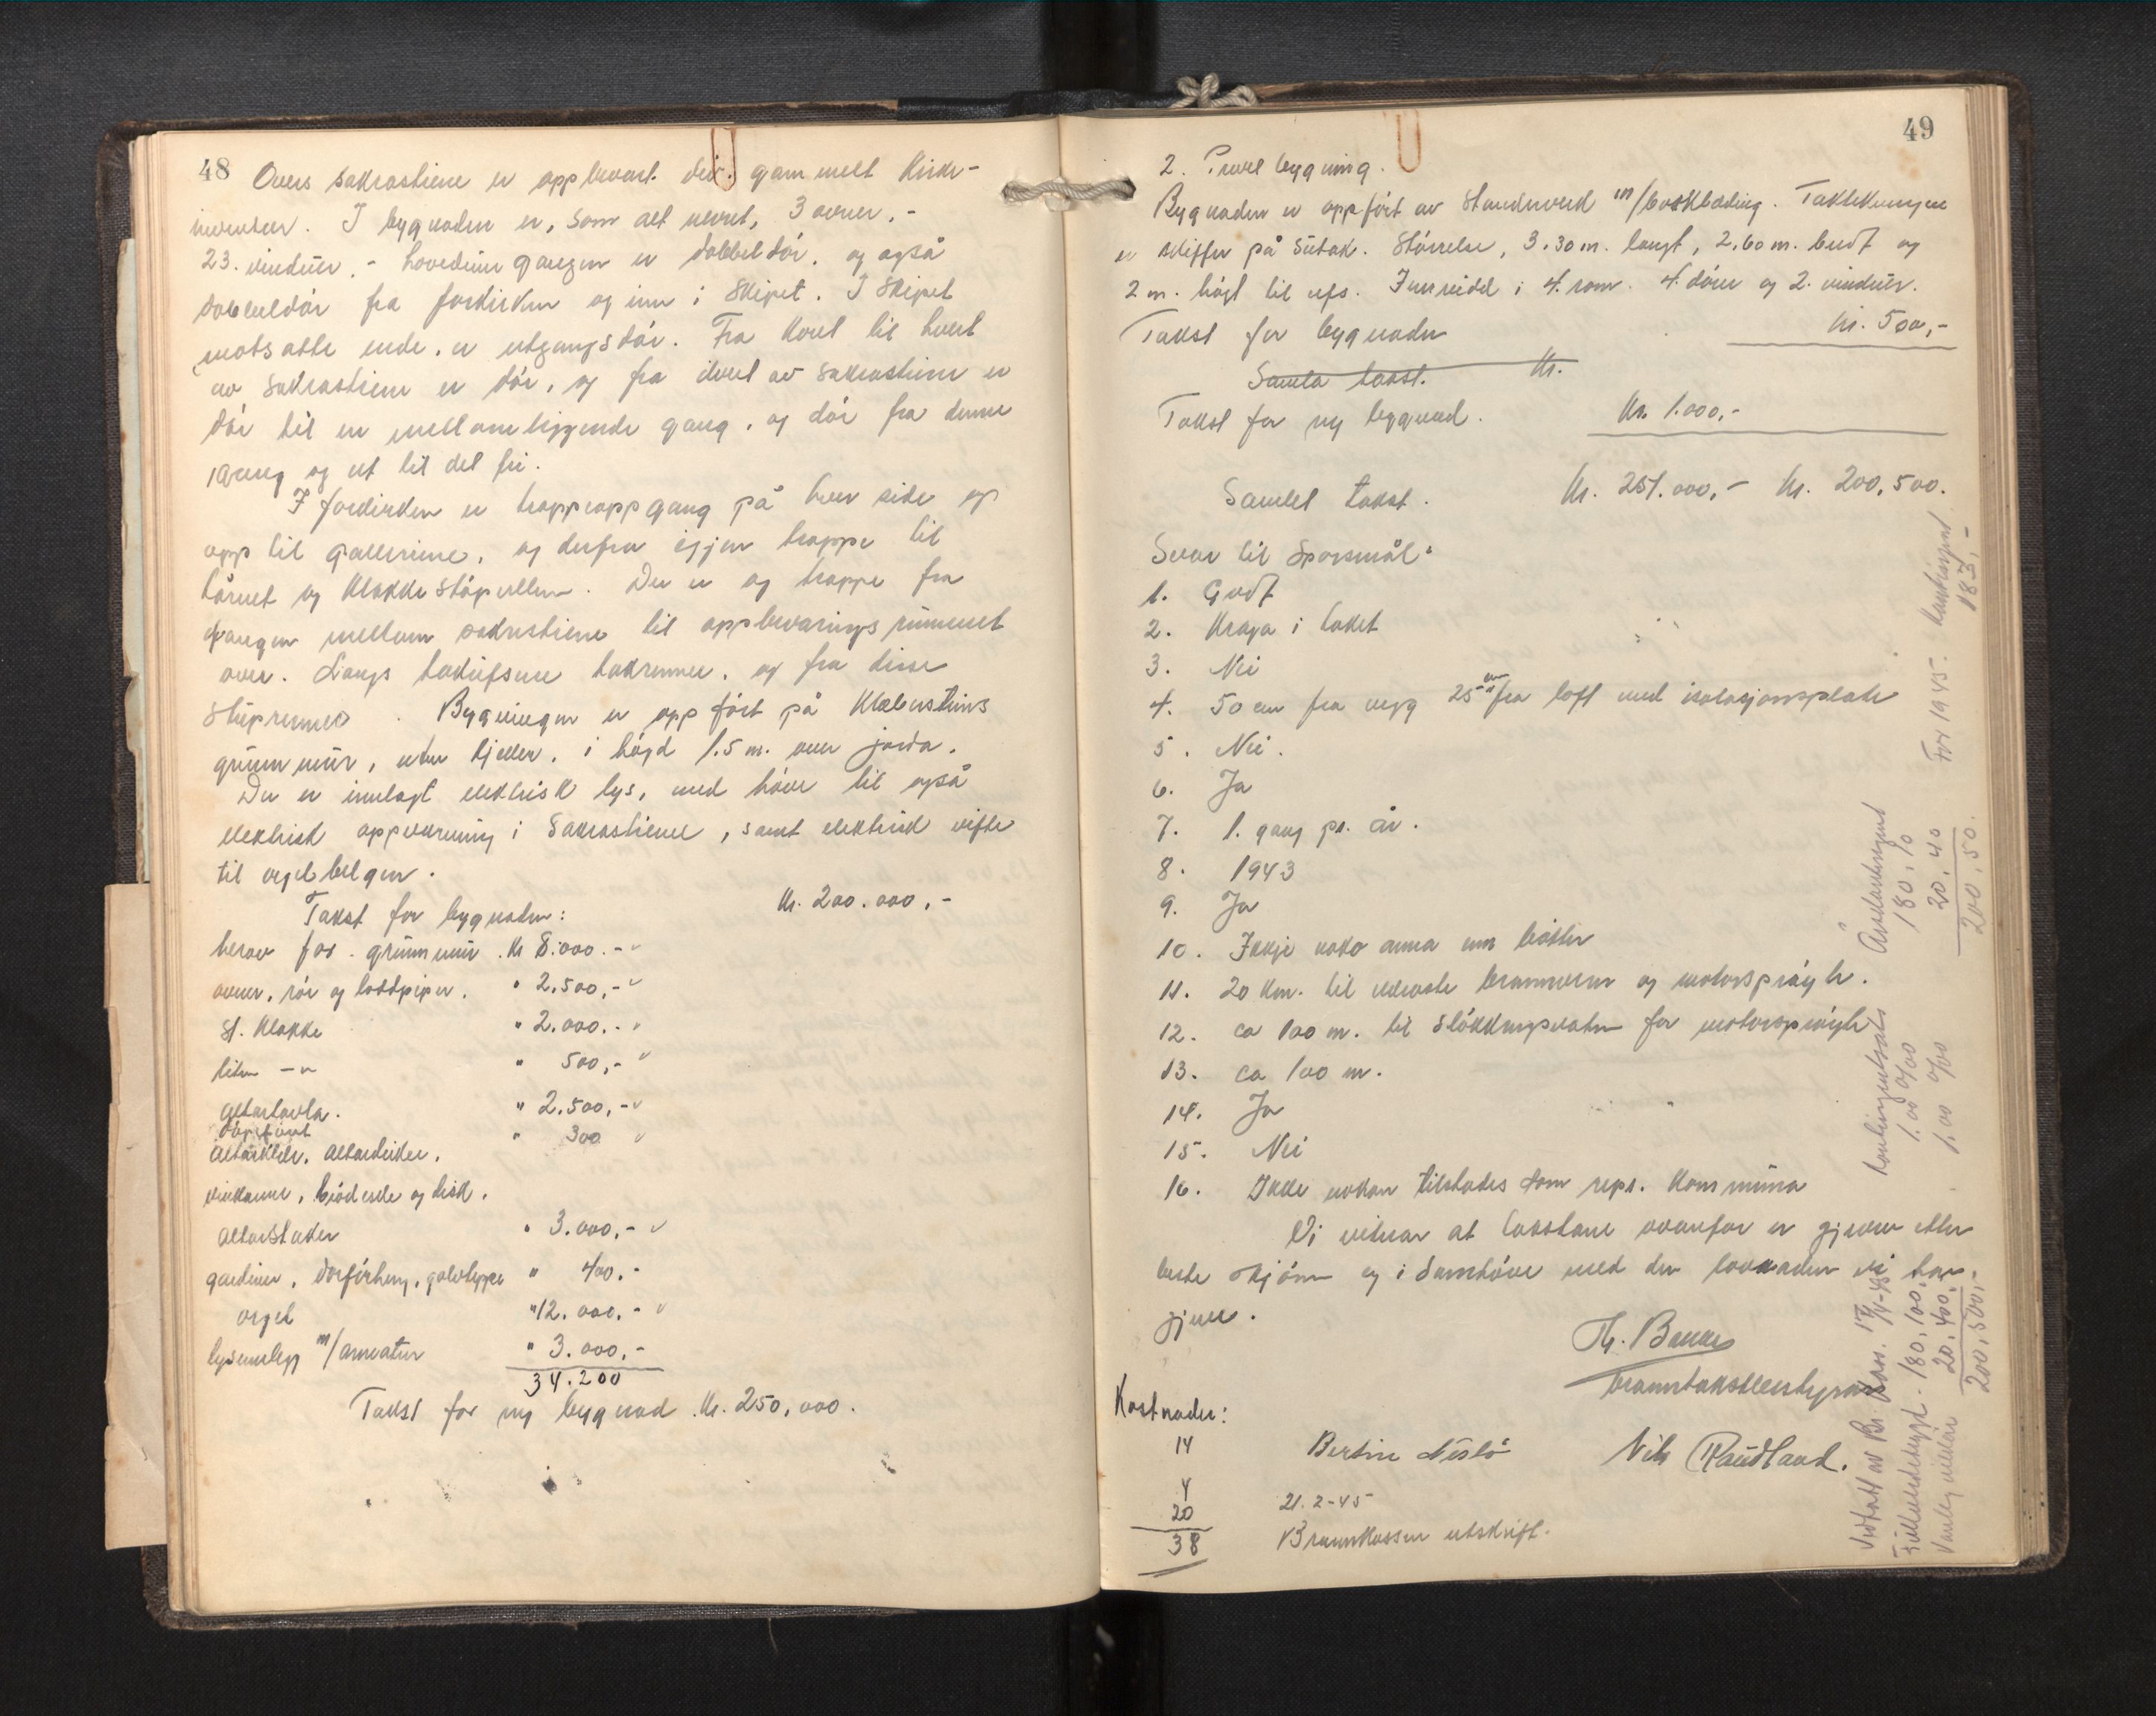 48
Overs sakrastiene er oppbevart div. gammelt kirke-
inventar. I bygnaden er, som alt nevnt, 3 ovner. -
23. vinduer. - hovedinngangen er dobbeldör. og også
dobbeldör fra forkirken og inn i Skipet. I Skipet
motsatte ende. er utgangsdör. Fra koret til hvert
av Sakrastiene er dör, og fra hvert av sakrastiene er
dör til en mellomliggende gang. og dör fra denne
gang og ut til det fri.
I forkirken er trappeoppgang på hver side og
opp til galleriene. og derfra igjen trappe til
tårnet og Klokkestöpullen. Der er og trappe fra
gangen mellom sakrastiene til oppbevaringsrummet
over. Langs takufsene takrenner. og fra disse
stuprenner. Bygningen er oppfört på Klebersteins
grunnmur, uten kjeller. i högd 1.5 m. over jorda.
Der er innlagt elektrisk lys, med höve til også
elektrisk oppvarming i Sakrastiene, samt elektrisk vifte
til orgelbelgen.
Takst for bygnaden: Kr. 200.000,-
herav for grunnmur. Kr 8.000.-
ovner, rör og loddpiper. " 2.500,-
St. Klokke " 2.000.-
liten -"- " 500,-
Altartavla. " 2.500,-
döpefont " 300
Altarkler, Altardisker,
vinkanne, brödeske og disk.
Altarstaker " 3.000,-
gardiner, dörforheng, golvteppe " 400,-
orgel " 12.000,-
lysanlegg m/armatur " 3.000,-
34.200
Takst for ny bygnad. Kr. 250,000.
49
2. Privet bygning.
Bygnaden er oppfört av Standverk m/bordkledning. Taktekningen
er skiffer på Sutak. Störrelse, 3.30 m. langt, 2.60 m. bredt og
2 m. högt til ufs. Innreidd i 4. rom. 4. dörer og 2. vinduer.
Takst for bygnaden kr. 500,-
Samla takst. Kr.
Takst for ny bygnad. Kr. 1.000,-
Samlet takst. Kr. 251.000,- Kr. 200,500.
Svar til Sporsmål:
1. Godt
2. Kraga i taket
3. Nei
4. 50 cm fra vegg 25 cm fra loft med isolasjonsplate
5. Nei.
6. Ja
7. 1. gang pr. år.
8. 1943
9. Ja
10. Ikkje noko anna enn bötter
11. 20 km. til næraste brannvern og motorspröyte.
12. ca 100 m. til Slökkingsvatn for motorspröyte
13. ca 100 m.
14. Ja
15. Nei
16. Ikke nokon tilstades som repr. Kommuna
Vi vitnar at takstane ovanfor er gjevne etter
beste skjönn og i Samhöve med den lovnaden vi har
gjeve.
Th. Bakke
branntakstbestyrar
Kostnader:
14
4
20
38
Bertin Neslö
Nils Raudland.
21. 2-45
Brannkassen utskrift.
For 1945 Kontingent
183,-
Årskontingent
180,10
20,40
200,50.
Kontingentsats
1.00 o/oo
1.00 o/oo
Vedtatt av Br. kass.
180,100,
20,400,
200,500,-